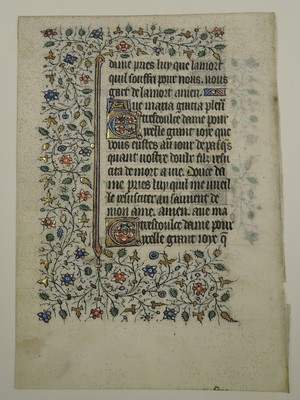 dame pries luy que la mort
quil souffri pour nous. nous
gart de la mort amen.
Aue maria gracia plen
Tresdoulce dame pour
ycelle grant ioye que
vous eustes au iour de pasqs
quant nostre doulz filz resu
cita de mort a uie. Douce da
me pries luy qui me vueil
le resusciter au sauuement de
mon ame. amen. aue ma
Tresdoulce dame pour
ycelle grant ioye q